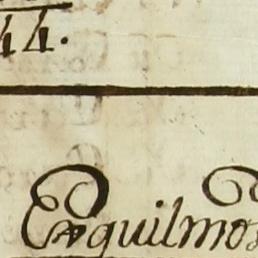 44.
Esquilmos